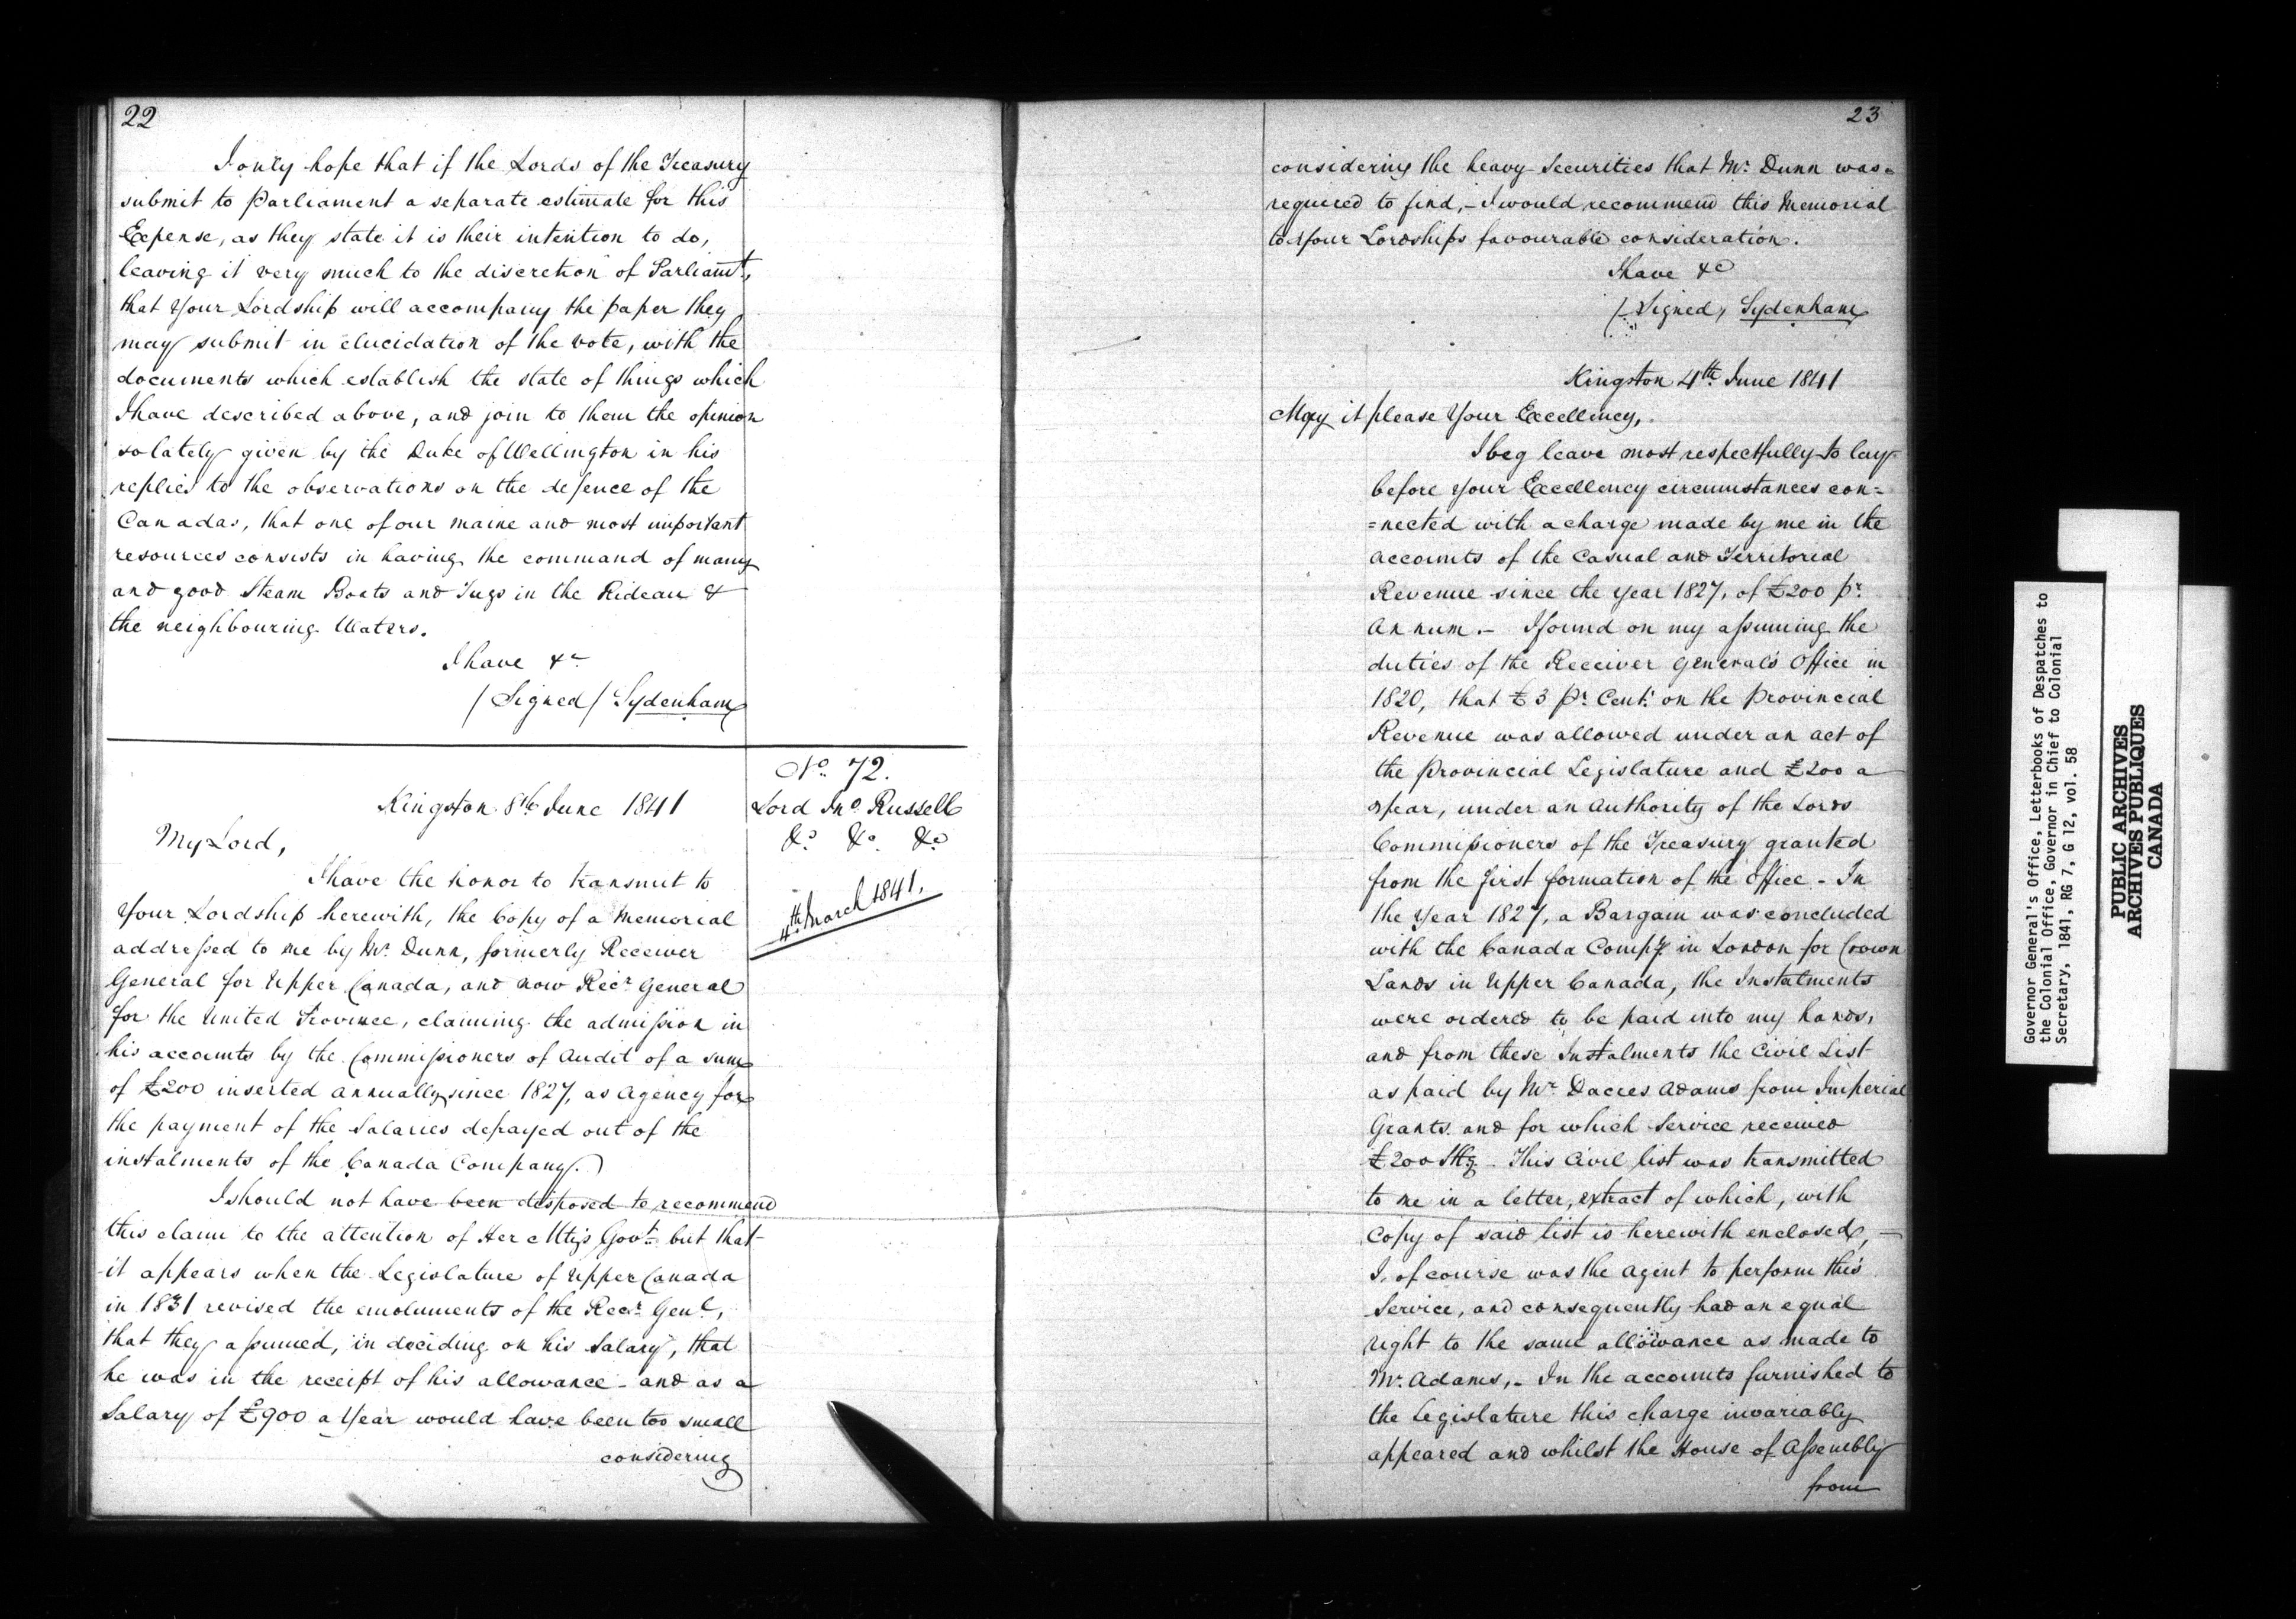 22
I only hope that if the Lords of the Treasury
submit to Parliament a separate estimate for this
Expense, as they state it is their intention to do,
leaving it very much to the discretion of Parliamt.,
that Your Lordship will accompany the paper they
may submit in elucidation of the vote, with the
documents which establish the state of things which
I have described above, and join to them the opinion
so lately given by the Duke of Wellington in his
replies to the observations on the defence of the
Canadas, that one of our maine and most important
resources consists in having the command of many
and good Steam Boats and Tugs in the Rideau &
the neighbouring Waters.
I have &c
/Signed/ Sydenham
No. 72.
Kingston 8th June 1841
Lord Jno. Russell
&c. &c. &c.
My Lord,
4th March 1841.
I have the honor to transmit to
Your Lordship herewith, the Copy of a Memorial
addressed to me by Mr. Dunn, formerly Receiver
General for Upper Canada, and now Recr. General
for the United Province, claiming the admission in
his accounts by the Commissioners of Audit of a sum
of £200 inserted annually since 1827, as Agency for
the payment of the Salaries defrayed out of the
instalments of the Canada Company.
I should not have been disposed to recommend
this claim to the attention of Her Mtys Govt. but that
it appears when the Legislature of Upper Canada
in 1831 revised the emoluments of the Recr. Genl.,
that they assumed, in deciding on his Salary, that
he was in the receipt of his allowance - and as a
Salary of £900 a Year would have been too small
considering
23
considering the heavy Securities that Mr. Dunn was
required to find, - I would recommend this Memorial
to Your Lordships favourable consideration.
I have &c
/Signed, Sydenham
Kingston 4th. June 1841
May it please Your Excellency,
I beg leave most respectfully to lay
before Your Excellency circumstances con=
=nected with a charge made by me in the
Accounts of the Casual and Territorial
Revenue since the Year 1827, of £200 pr.
Annum. - I found on my assuming the
duties of the Receiver General's Office in
1820, that £3 pr. Cent. on the Provincial
Revenue was allowed under an act of
the Provincial Legislature and £200 a
Year, under an Authority of the Lords
Commissioners of the Treasury granted
from the first formation of the Office - In
the Year 1827, a Bargain was concluded
with the Canada Compy. in London for Crown
Lands in Upper Canada, the Instalments
were ordered to be paid into my hands,
and from these Instalments the Civil List
as paid by Mr. Dacres Adams from Imperial
Grants. and for which Service received
£200 Stg. This Civil list was transmitted
to me in a letter, extract of which, with
Copy of said list is herewith enclosed, -
I, of course was the Agent to perform this
Service, and consequently had an equal
right to the same allowance as made to
Mr. Adams, - In the accounts furnished to
the Legislature this charge invariably
appeared and whilst the House of Assembly
from
Governor General's Office, Letterbooks of Despatches to
the Colonial Office, Governor in Chief to Colonial
Secretary, 1841, RG 7, G 12, vol. 58
PUBLIC ARCHIVES
ARCHIVES PUBLIQUES
CANADA